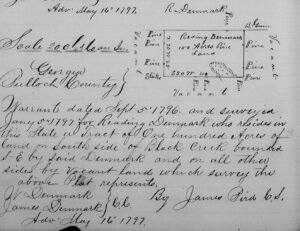 Adv. May 16th 1797.
R. Denmark
Pine
B. Gum
Vacant
Pine
Pine
State
Reading Denmark
100 Acres Pine
Land
Pine
Pine
Vacant
Scale 20 Chs. to an Inch
Georgia
Bulloch County}
Warrant dated Sept 5th 1796. and surveyed
Jany 5th 1797 for Reading Denmark who resides in
this State a Tract of One hundred Acres of
land on South side of Black Creek bound
S. E by said Denmark and on all other
sides by Vacant land which survey the
above Plat represents,
W. Denmark
James Denmark } C.C.
By James Bird C.S.
Adv. May 16th 1797.